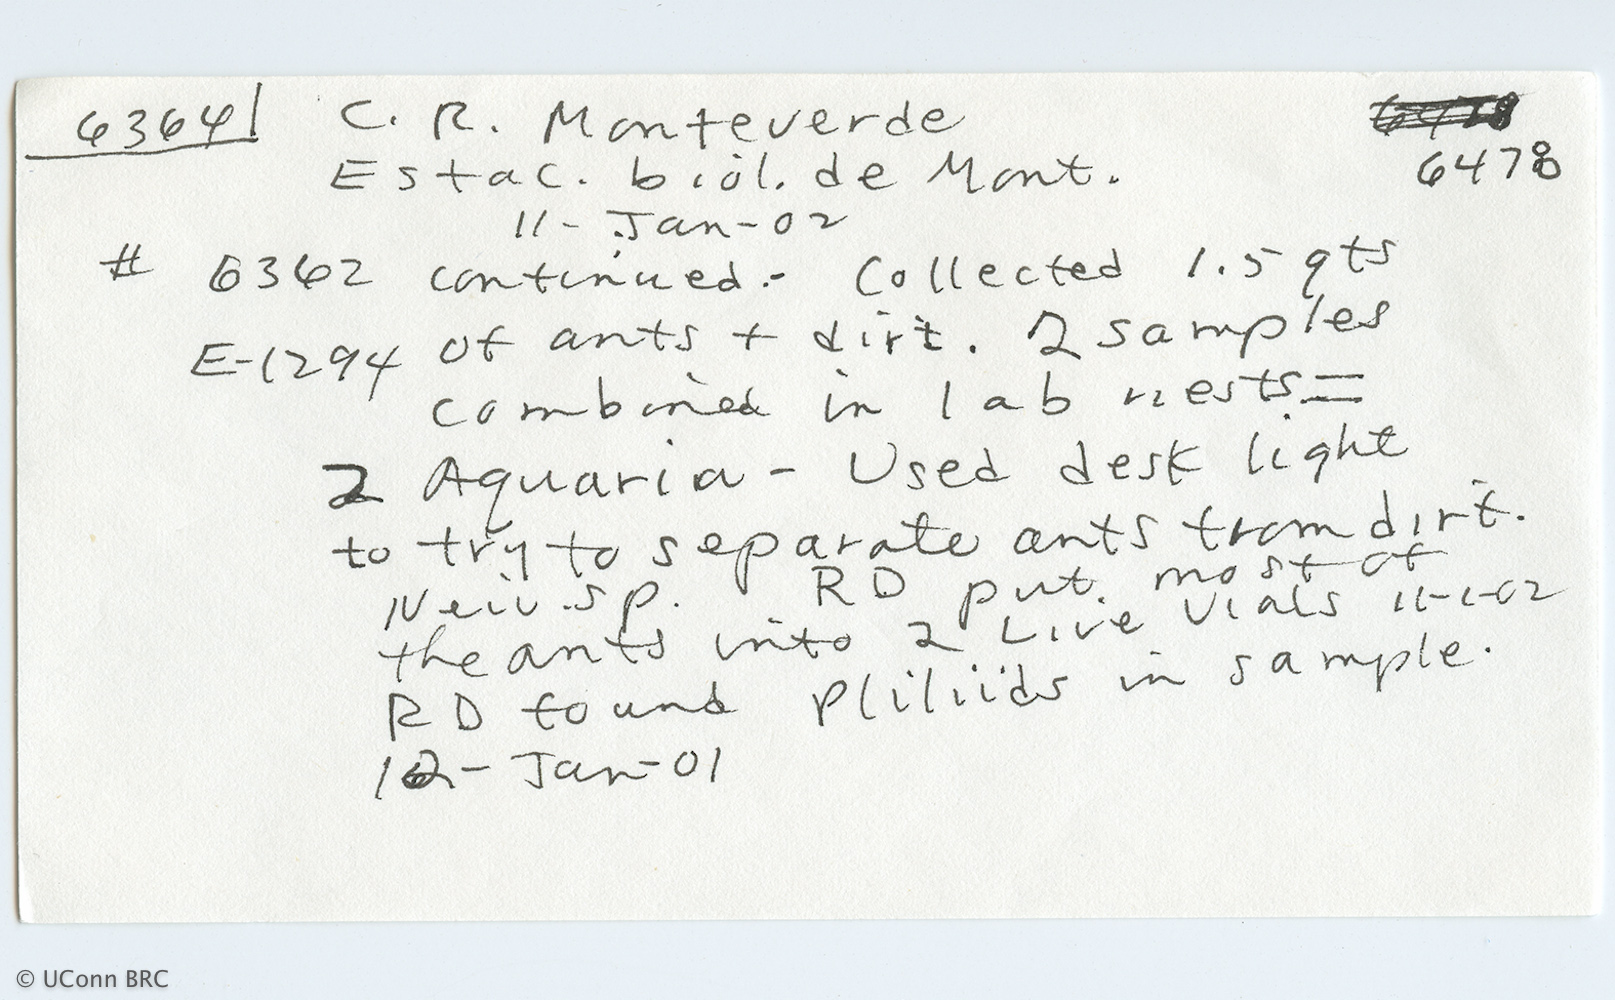 6364 C. R. Monteverde
Estac. biol. de Mont.
6478
11-Jan-02
# 6362 continued.- Collected 1.5 qts
E-1294 of ants + dirt. 2 samples
combined in lab nests =
2 Aquaria - Used desk light
to try to separate ants from dirt.
Neiv. sp. RD put most of
the ants into 2 Live Vials 11-1-02
RD found Pliliids in sample.
12-Jan-01
© UConn BRC